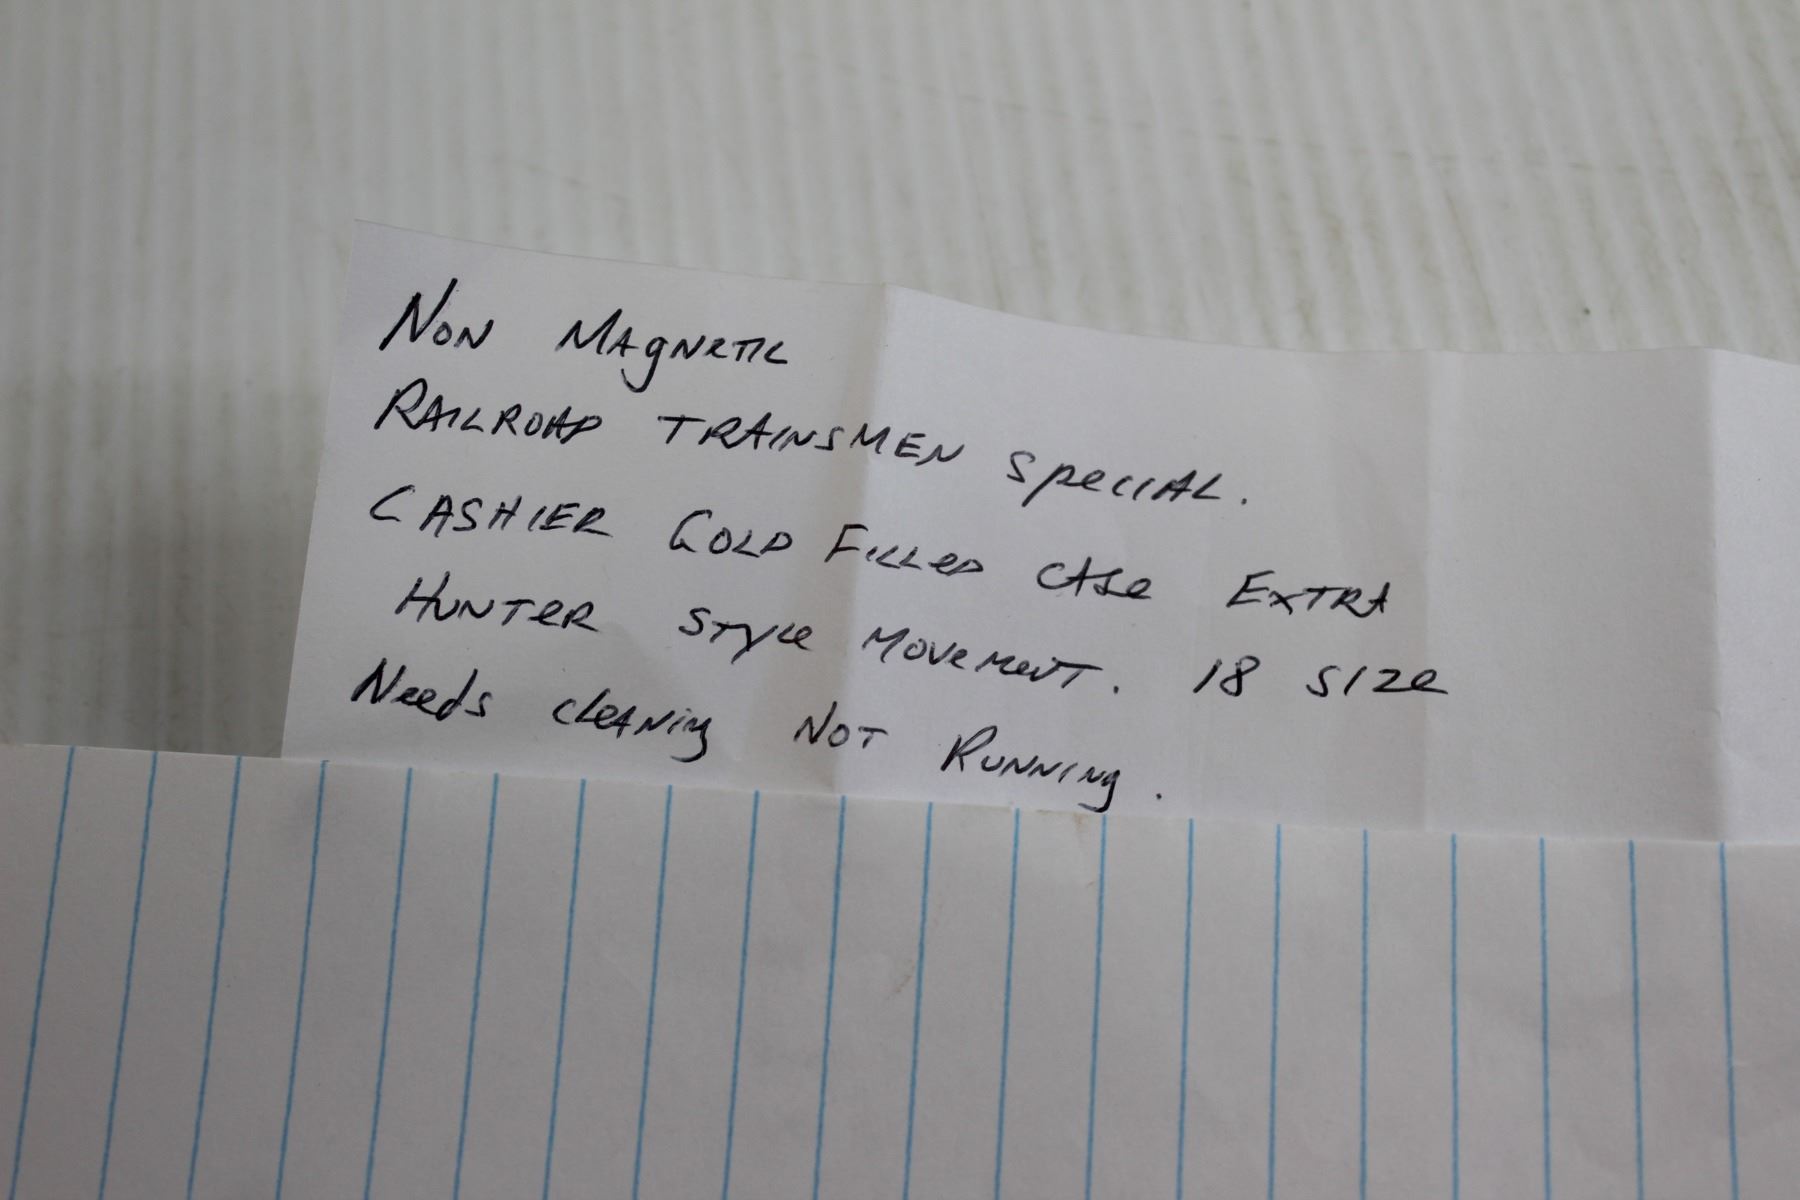 Non Magnetic
RAILROAD TRAINSMEN special.
CASHIER GOLD FILLED CASE EXTRA
HUNTER STYLE MOVEMENT. 18 SIZE
Needs cleaning NOT RUNNING.